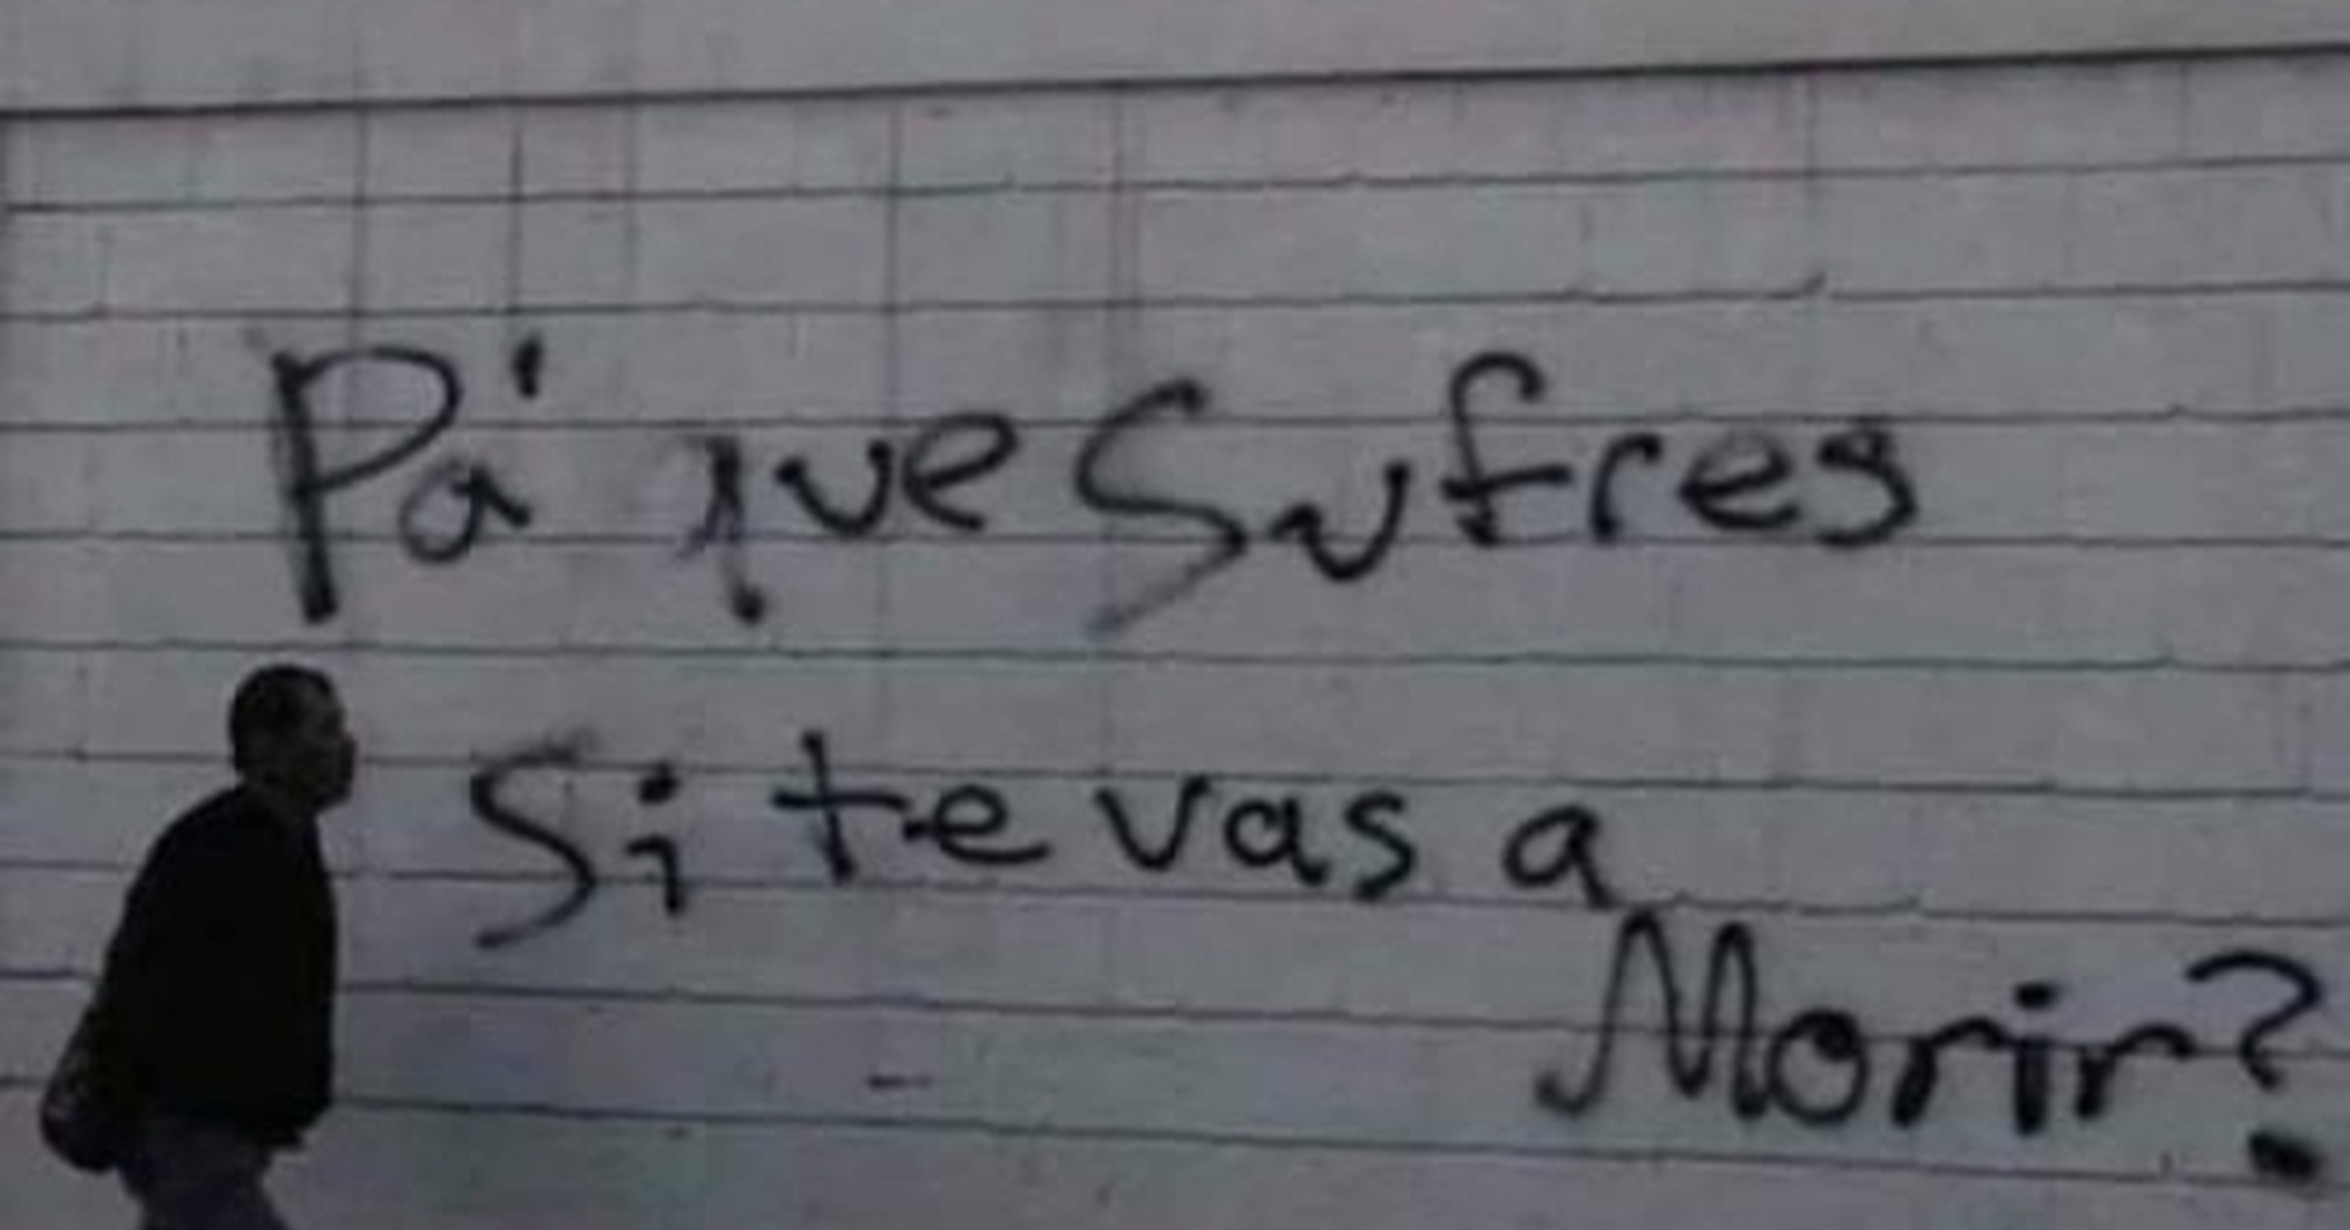 Pa' que Sufres
Si te vas a
Morir?